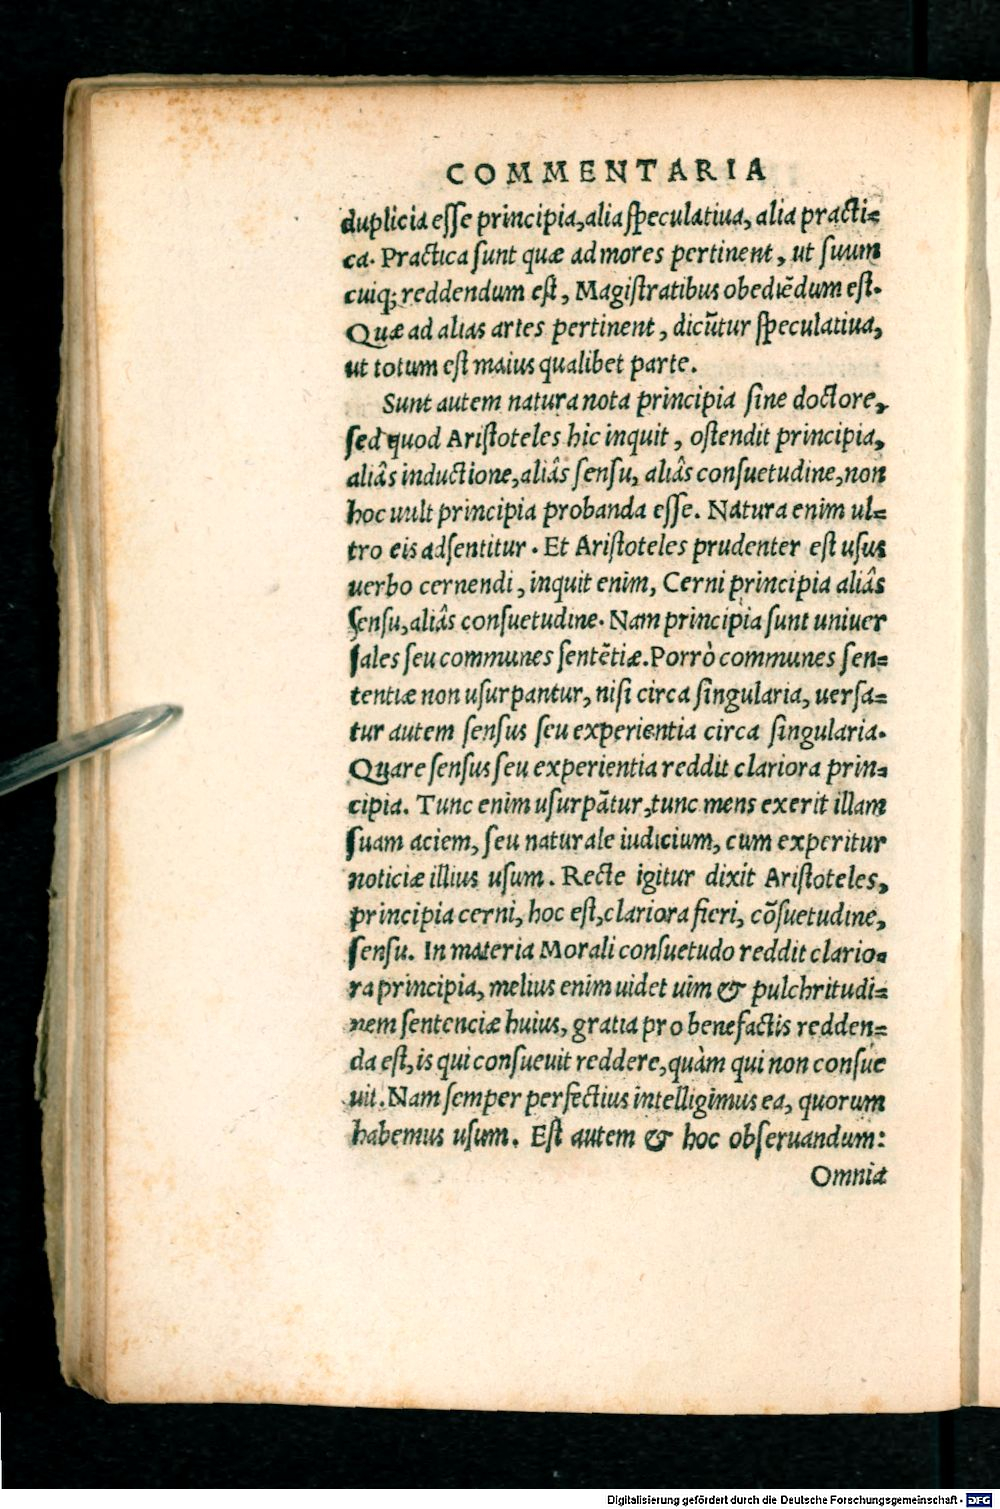 COMMENTARIA
duplicia esse principia, alia speculatiua, alia practi=
ca. Practica sunt quæ ad mores pertinent, ut suum
cuiq; reddendum est, Magistratibus obediēdum est.
Quæ ad alias artes pertinent, dicūtur speculatiua,
ut totum est maius qualibet parte.
Sunt autem natura nota principia sine doctore,
sed quod Aristoteles hic inquit, ostendit principia,
aliâs inductione, aliâs sensu, aliâs consuetudine, non
hoc uult principia probanda esse. Natura enim ul=
tro eis adsentitur. Et Aristoteles prudenter est usus
uerbo cernendi, inquit enim, Cerni principia aliâs
sensu, aliâs consuetudine. Nam principia sunt uniuer
sales seu communes sentētiæ. Porrò communes sen=
tentiæ non usurpantur, nisi circa singularia, uersa=
tur autem sensus seu experientia circa singularia.
Quare sensus seu experientia reddit clariora prin=
cipia. Tunc enim usurpātur, tunc mens exerit illam
suam aciem, seu naturale iudicium, cum experitur
noticiæ illius usum. Recte igitur dixit Aristoteles,
principia cerni, hoc est, clariora fieri, cōsuetudine,
sensu. In materia Morali consuetudo reddit clario=
ra principia, melius enim uidet uim & pulchritudi=
nem sentenciæ huius, gratia pro benefactis redden=
da est, is qui consueuit reddere, quàm qui non consue
uit. Nam semper perfectius intelligimus ea, quorum
habemus usum. Est autem & hoc obseruandum:
Omnia
Digitalisierung gefördert durch die Deutsche Forschungsgemeinschaft - DFG